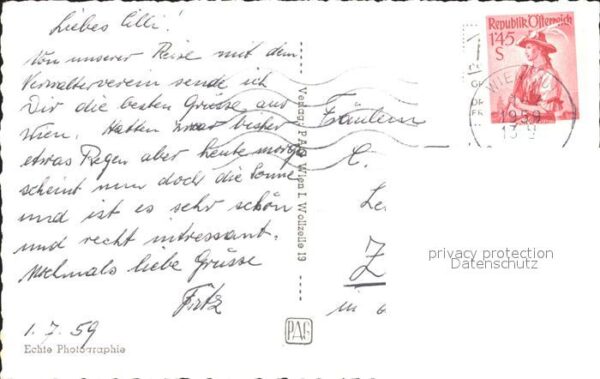 Liebes Cilli!
Von unserer Reise mit dem
Verwalterverein sende ich
Dir die besten Grüsse aus
Wien. Hatten zwar bisher
etwas Regen aber heute morgen
scheint nun doch die Sonne
und ist es sehr schön
und recht intressant.
Nochmals liebe Grüsse
Fritz
1. 7. 59
Echte Photographie
Verlag PAG Wien I. Wollzeile 19
PAG
Republik Österreich
1'45
S
WIEN
1959
Fräulein
C.
Z
privacy protection
Datenschutz